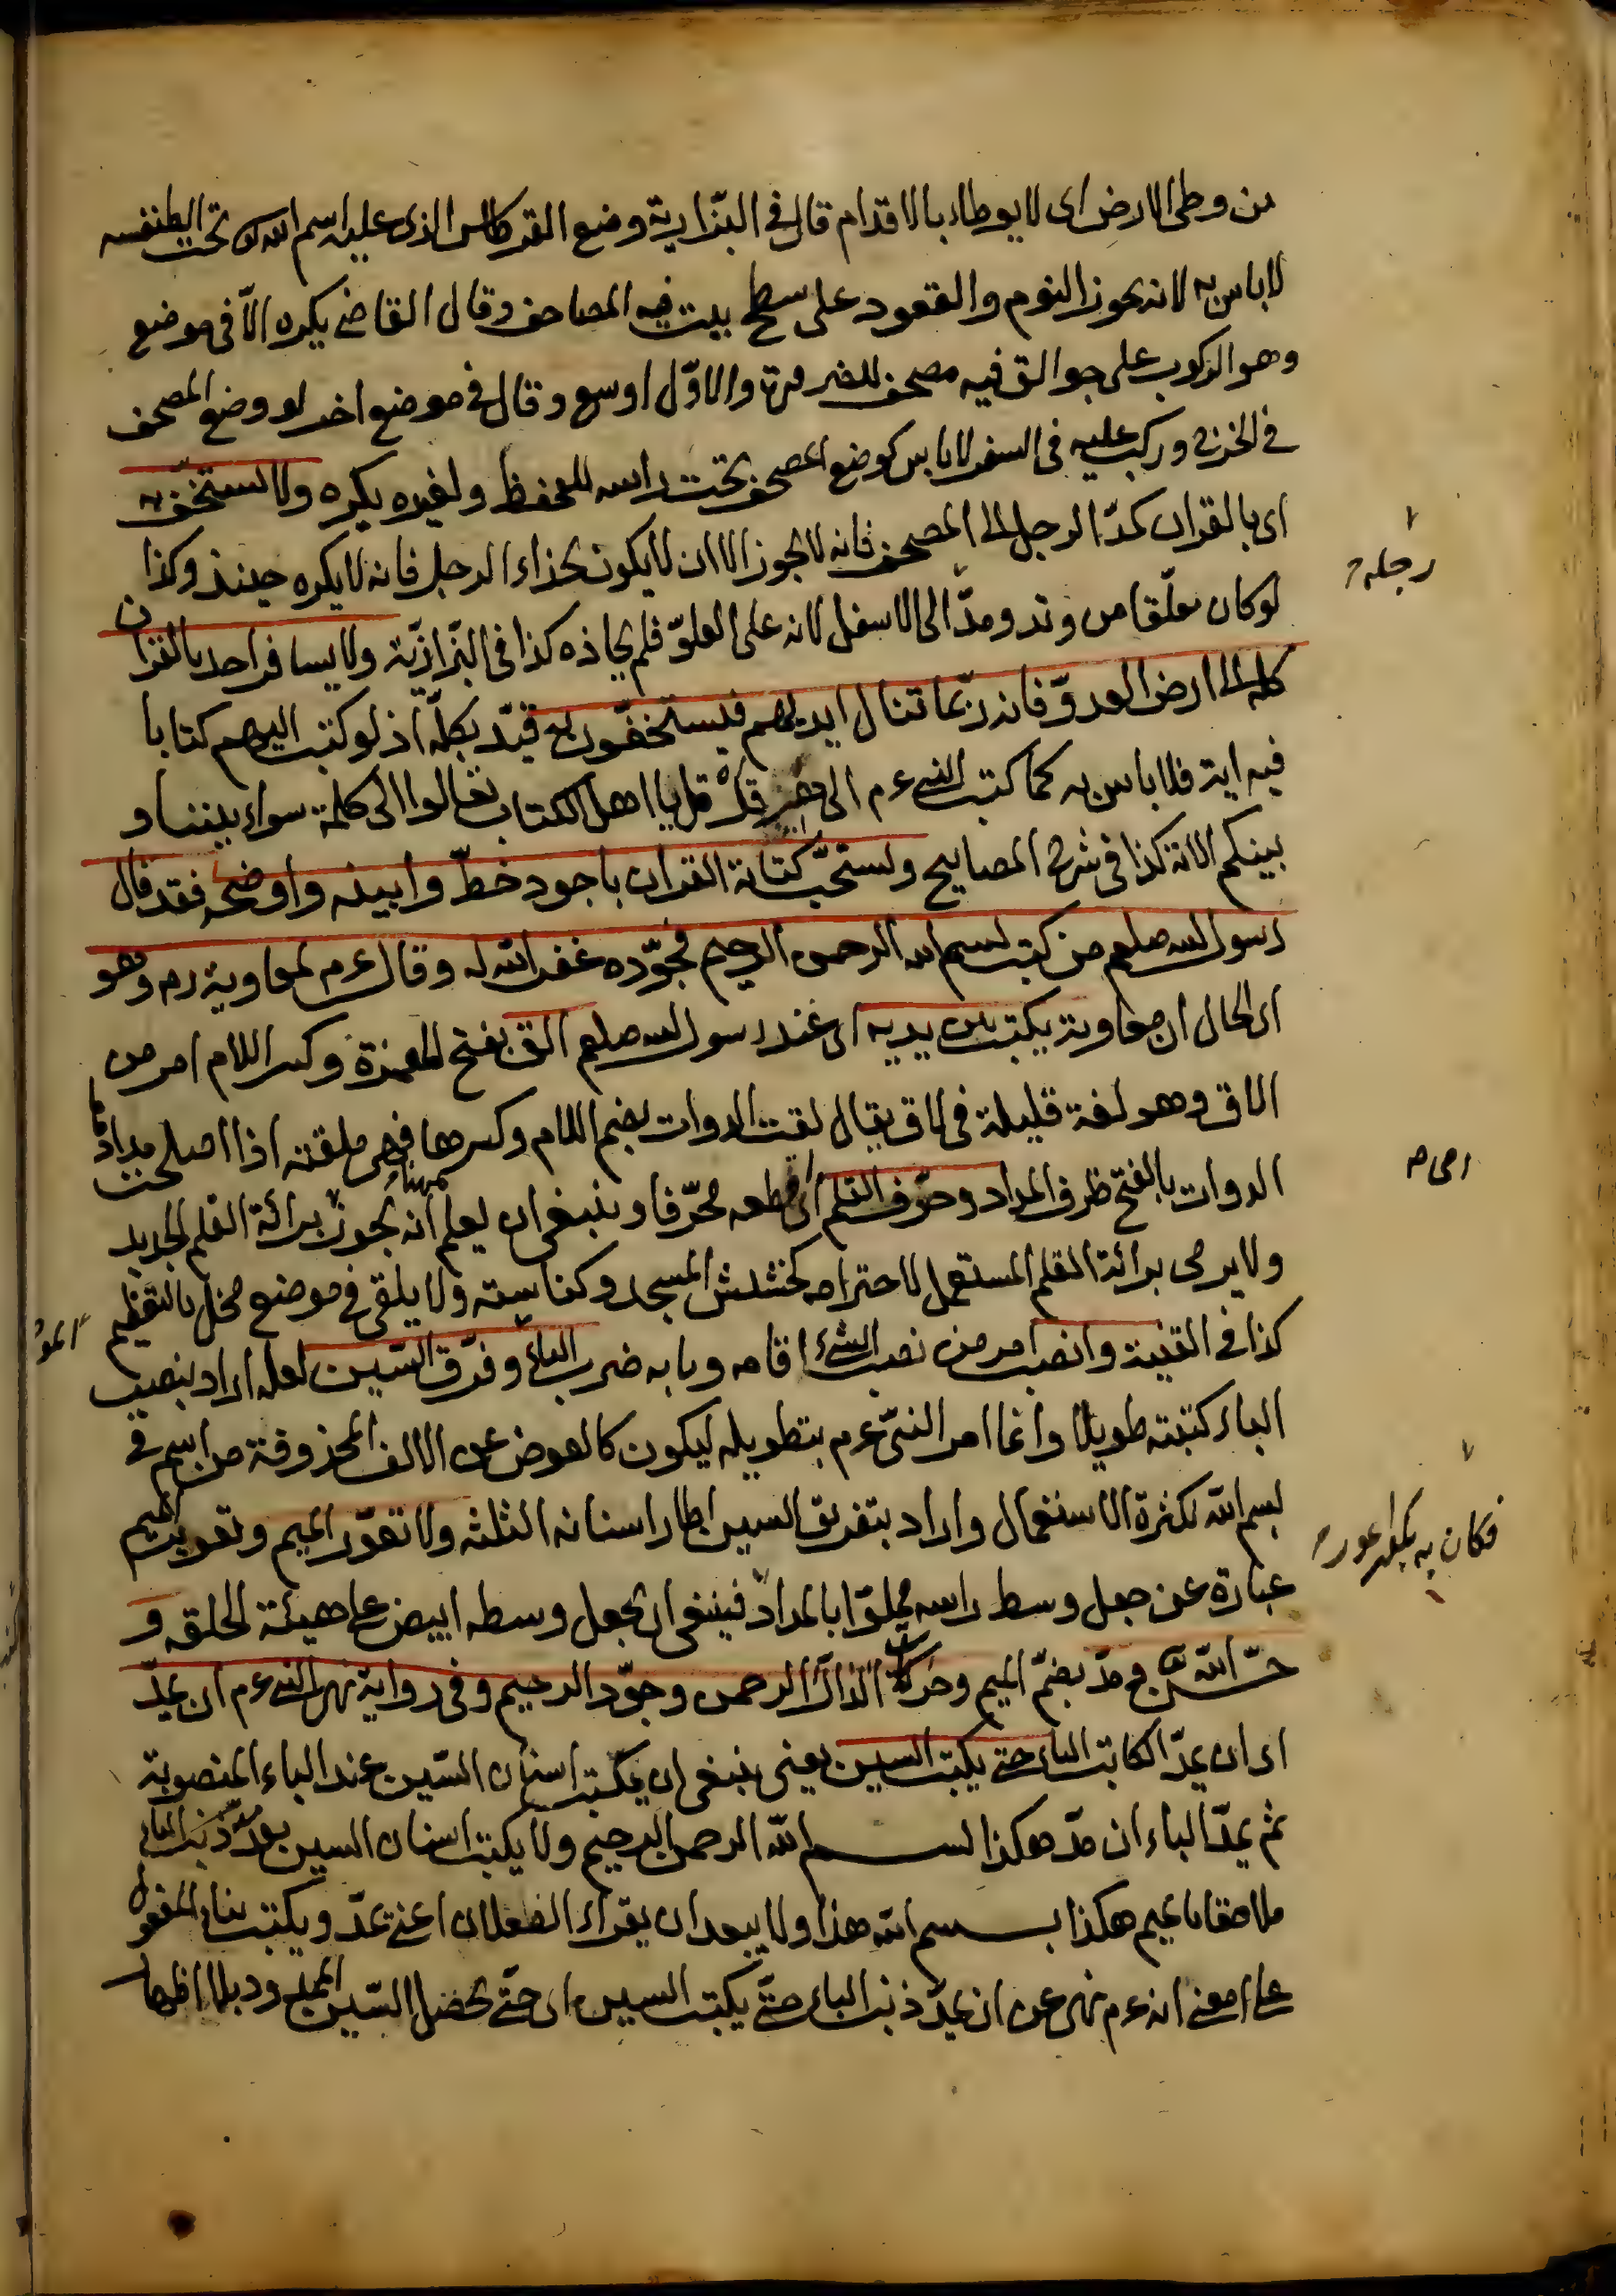 من وطئ الارض اى لا يوطاء بالاقدام قال فى البزازية وضع القرطاس الذى عليه اسم الله تحت الطنفسه
لا باس به لانه يجوز النوم والقعود على سطح بيت فيه المصاحف وقال القاضى يكره الّا فى موضع
وهو الركوب على جوالق فيه مصحف للضرورة والاوّل اوسع وقال فى موضع اخر لو وضع المصحف
فى الخرج وركب عليه فى السفر لا باس كوضع المصحف تحت راسه للحفظ ولغيره يكره ولا يستخفّ به
اى بالقران كمدّ الرجل الى المصحف فانه لا يجوز الا ان لا يكون بحذاء الرجل فانه لا يكره حينئذ وكذا
لو كان معلّقا من وتد ومدّ الى الاسفل لانه على العلوّ فلم يحاذه كذا فى البّزازيّة ولا يسافر احد بالقران
كله الى ارض العدوّ فانه ربّما تنال ايديهم فيستخفّون به قيّد بكلّه اذ لو كتب اليهم كتابا
فيه اية فلا باس به كما كتب النبى عم الى قل يا اهل الكتاب تعالوا الى كلمة سواء بيننا و
بينكم الاية كذا فى شرح المصابيح ويستحبّ كتابة القران باجود خطّ وابينه واوضحه فقد قال
رسول الله صلعم من كتب بسم الله الرحمن الرحيم فجوّده غفر الله له وقال عم لمعاوية رم وهو
اى الحال ان معاوية يكتب بين يديه اى عند رسول الله صلعم الق بفتح الهمزة وكسر اللام امر من
الاق وهو لغة قليلة فى لاق يقال لقت الدوات بضم اللام وكسرها فهى ملقته اذا اصلحت مدادها
الدوات بالفتح ظرف المداد وحرّف القلم اى قطعه محرّفا وينبغى ان يعلم انه يجوز براءة القلم الجديد
ولا يرمى براءة القلم المستعمل لاحترامه كحشيش المسجد وكناسته ولا يلقى فى موضع مخل بالتعظيم
كذا فى القنية وانصب امر من نصب الشئ اقامه وبابه ضرب الباء وفرّق السّين لعله اراد بنصب
الباء كتبته طويلا وانما امر النبّى عم بتطويله ليكون كالعوض عن الالف المحذوفة من اسم فى
بسم الله لكثرة الاستعمال واراد بتفريق السين اظهار اسنانه الثلثه ولا تعوّر الميم وتعوير الميم
عبارة عن جعل وسط راسه مملوّا بالمداد فينبغى ان يجعل وسطه ابيض على هيئة الحلقه و
حسّن الله ومدّ بضمّ الميم وحركات الدال الرحمن وجوّد الرحيم وفى رواية نهى النبى عم ان يمدّ
اى ان يمدّ الكاتب الباء حتى يكتب السين يعنى ينبغى ان يكتب اسنان السّين عند الباء المنصوبة
ثم يمدّ الباء ان مدّ هكذا بسم الله الرحمن الرحيم ولا يكتب اسنان السين بعد مدّ ذنب الباء
ملاصقا بالميم هكذا بسم الله هذا ولا يبعد ان يقراء الفعلان اعنى يمدّ ويكتب بناء المفعول
على معنى انه عم نهى عن ان يمدّ ذنب الباء حتّى يكتب السين اى حتّى يحصل السّين الممدود بلا اظهار
رجله
فكان به